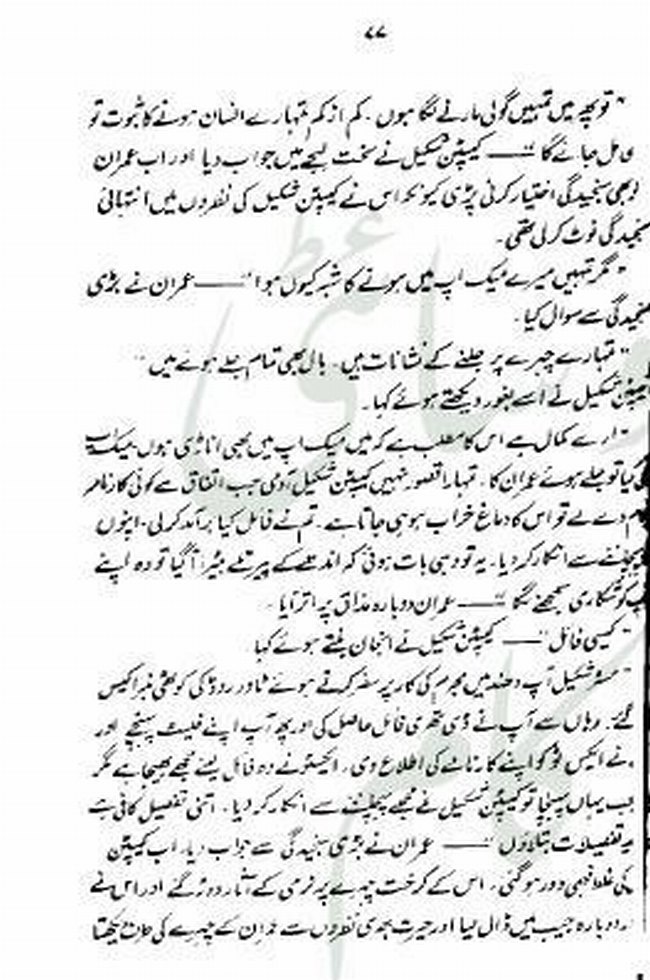 ۷۷
" تو پھر میں تمہیں گولی مارنے لگا ہوں۔ کم از کم تمہارے انسان ہونے کا ثبوت تو
مل جائے گا "—— کیپٹن شکیل نے سخت لہجے میں جواب دیا اور اب عمران
بھی سنجیدگی اختیار کرنی پڑی کیونکہ اس نے کیپٹن شکیل کی نظروں میں انتہائی
سنجیدگی نوٹ کر لی تھی۔
" مگر تمہیں میرے میک اپ میں ہونے کا شبہ کیوں ہوا "—— عمران نے بڑی
سنجیدگی سے سوال کیا۔
" تمہارے چہرے پر جلنے کے نشانات ہیں۔ بال بھی تمام جلے ہوئے ہیں "
کیپٹن شکیل نے اسے بغور دیکھتے ہوئے کہا۔
" ارے کمال ہے اس کا مطلب ہے کہ میں میک اپ میں بھی اناڑی ہوں۔ میک اپ
کیا تو جلے ہوئے عمران کا۔ تمہارا قصور نہیں کیپٹن شکیل آدمی جب اتفاق سے کوئی کارنامہ
دے لے تو اس کا دماغ خراب ہو ہی جاتا ہے۔ تم نے فائل کیا برآمد کر لی۔ اپنوں
پہچاننے سے انکار کر دیا۔ یہ تو وہی بات ہوئی کہ اندھے کے پیر تلے بٹیر آ گیا تو وہ اپنے
کو شکاری سمجھنے لگا "—— عمران دوبارہ مذاق پر اتر آیا۔
" کیسی فائل "—— کیپٹن شکیل نے انجان بنتے ہوئے کہا
" مسٹر شکیل آپ دھند میں مجرم کی کار پر سفر کرتے ہوئے ٹاور روڈ کی کوٹھی نمبر اکیس
گئے۔ وہاں سے آپ نے ڈی تھری فائل حاصل کی اور پھر آپ اپنے فلیٹ پہنچے اور
نے ایکس ٹو کو اپنے کارنامے کی اطلاع دی۔ ایکسٹو نے وہ فائل لینے مجھے بھیجا ہے مگر
جب یہاں پہنچا تو کیپٹن شکیل نے مجھے پہچاننے سے انکار کر دیا۔ اتنی تفصیل کافی ہے
تفصیلات بتلاؤں "—— عمران نے بڑی سنجیدگی سے جواب دیا۔ اب کیپٹن
کی غلط فہمی دور ہو گئی۔ اس کے کرخت چہرے پہ نرمی کے آثار دوڑ گئے اور اس نے
دوبارہ جیب میں ڈال لیا اور حیرت بھری نظروں سے عمران کے چہرے کی طرف دیکھتا